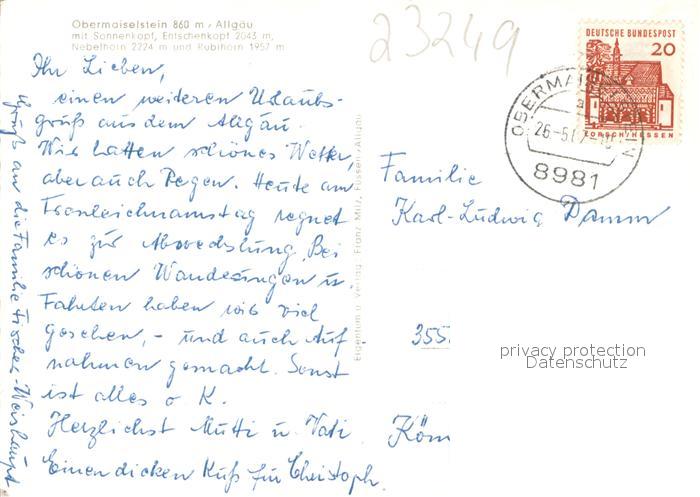 Obermaiselstein 860 m · Allgäu
mit Sonnenkopf, Entschenkopf 2043 m,
Nebelhorn 2224 m und Rubihorn 1957 m
23249
DEUTSCHE BUNDESPOST
20
LORSCH/HESSEN
OBERMAI
a
26-5
8981
Ihr Lieben,
einen weiteren Urlaubs-
gruß aus dem Allgäu.
Wir hatten schönes Wetter,
aber auch Regen. Heute am
Fronleichnamstag regnet
es zur Abwechslung. Bei
schönen Wanderungen u.
Fahrten haben wir viel
gesehen, - und auch Auf-
nahmen gemacht. Sonst
ist alles o K.
Herzlichst Mutti u. Vati
Einen dicken Kuß für Christoph.
Gruß an die Familie Fischer-Weishaupt
Eigentum u. Verlag: Franz Milz, Füssen/Allgäu
Familie
Karl-Ludwig Damm
355
privacy protection
Datenschutz